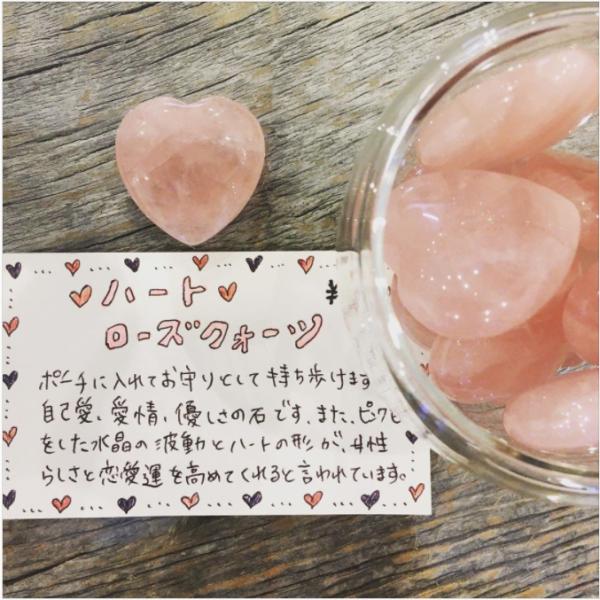 ハート ¥
ローズクォーツ
ポーチに入れてお守りとして持ち歩けます
自己愛、愛情、優しさの石です。また、ピンク色
をした水晶の波動とハートの形が、女性
らしさと恋愛運を高めてくれると言われています。